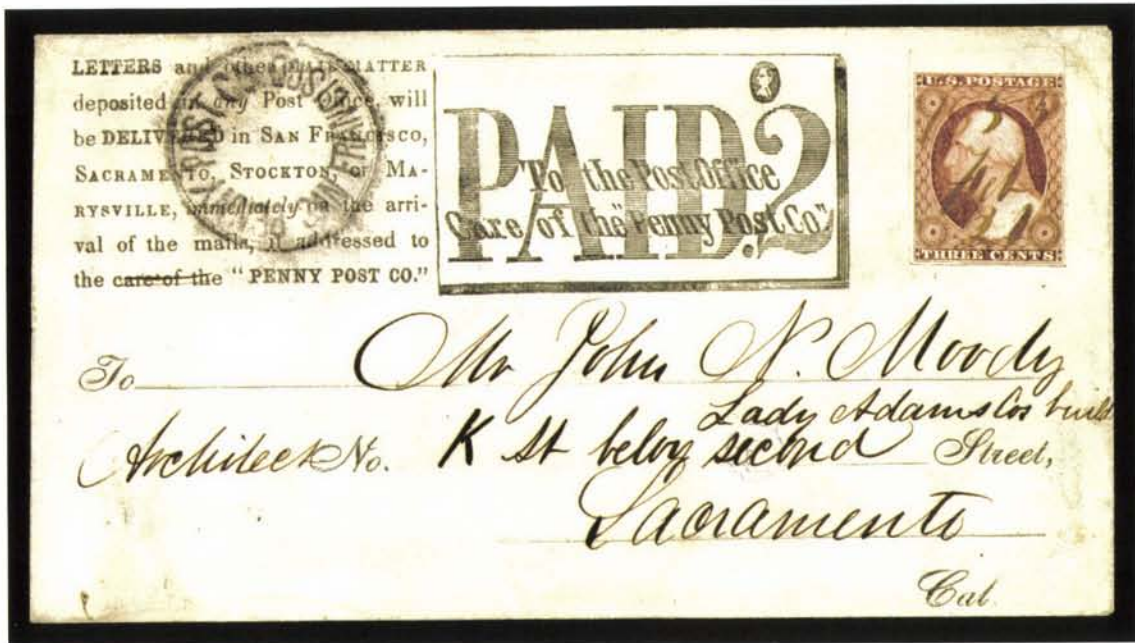 LETTERS and other MAIL MATTER
deposited in any Post Office, will
be DELIVERED in SAN FRANCISCO,
SACRAMENTO, STOCKTON, or MA-
RYSVILLE, immediately on the arri-
val of the mails, if addressed to
the care of the "PENNY POST CO."
PENNY POST CO.
PAID.2
To the Post Office
Care of the "Penny Post Co."
U.S. POSTAGE
THREE CENTS
To Mr John N. Moody
Lady Adams Cos build
Architect No. K St below second Street,
Sacramento
Cal.